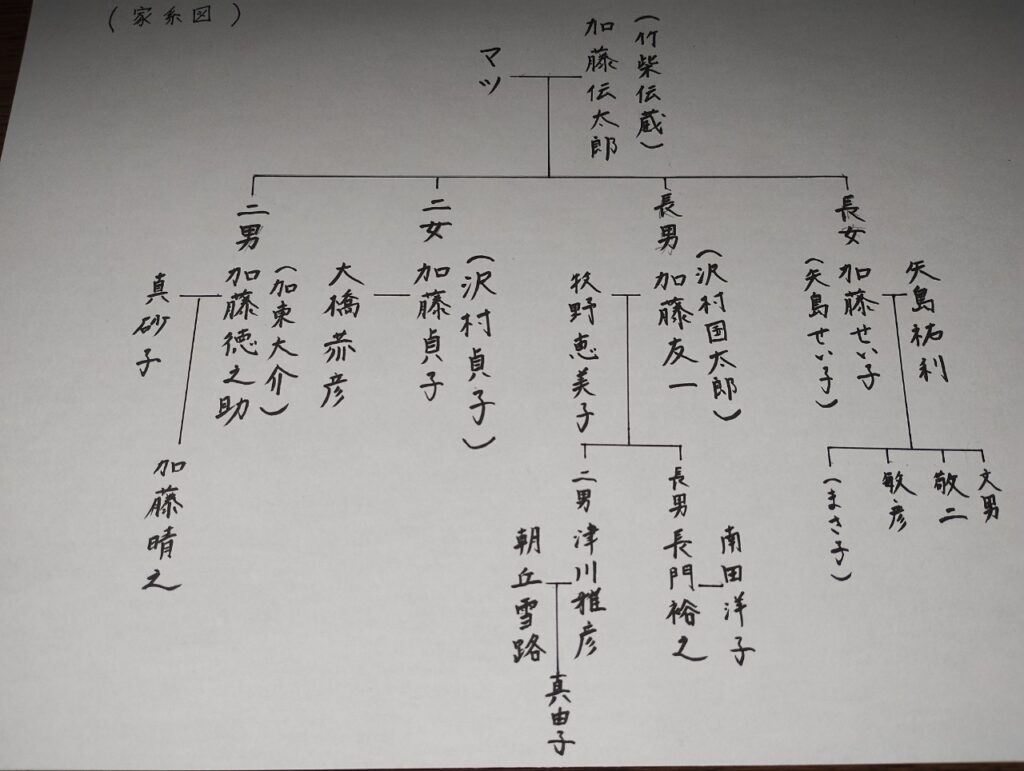 (家系図)
(竹柴伝蔵)
加藤伝太郎
マツ
長女
矢島祐利
加藤せい子
(矢島せい子)
文男
敬二
敏彦
(まさ子)
長男
(沢村国太郎)
加藤友一
牧野恵美子
長男
南田洋子
長門裕之
二男
津川雅彦
朝丘雪路
真由子
二女
(沢村貞子)
加藤貞子
大橋恭彦
二男
(加東大介)
加藤徳之助
真砂子
加藤晴之